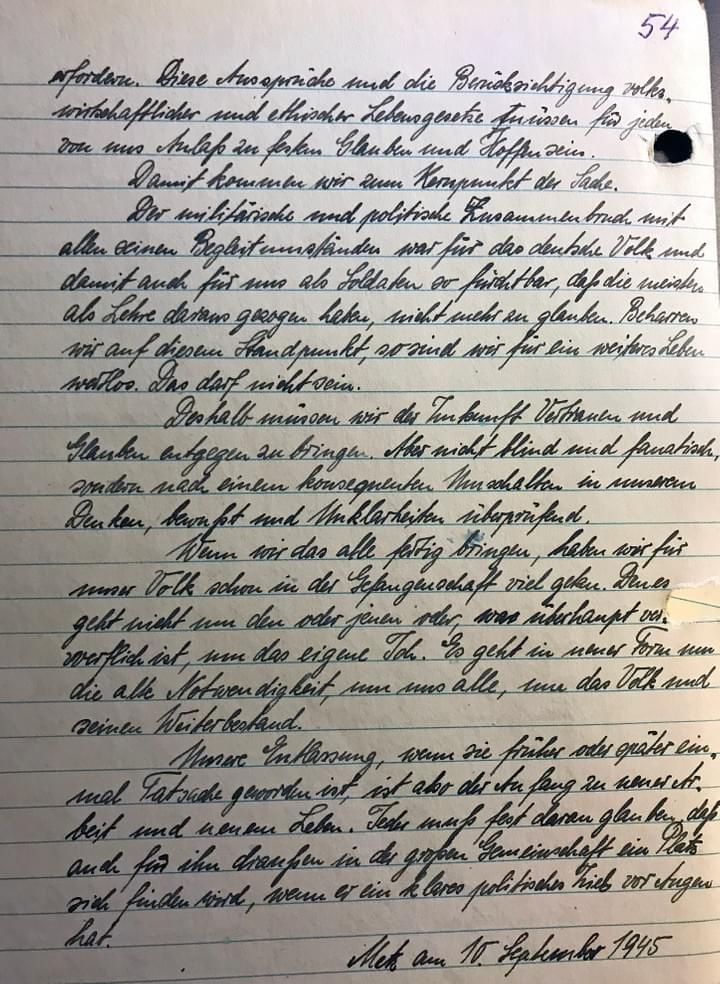 54
erfordern. Diese Aussprüche und die Berücksichtigung volks-
wirtschaftlicher und ethischer Lebensgesetze müssen für jeden
von uns Anlaß zu festem Glauben und Hoffen sein.
Damit kommen wir zum Kernpunkt der Sache.
Der militärische und politische Zusammenbruch mit
allen seinen Begleitumständen war für das deutsche Volk und
damit auch für uns als Soldaten so furchtbar, daß die meisten
als Lehre daraus gezogen haben, nicht mehr zu glauben. Beharren
wir auf diesem Standpunkt, so sind wir für ein weiteres Leben
wertlos. Das darf nicht sein.
Deshalb müssen wir der Zukunft Vertrauen und
Glauben entgegen zu bringen. Aber nicht blind und fanatisch,
sondern nach einem konsequenten Umschalten in unserem
Denken, bewußt und Unklarheiten überprüfend.
Wenn wir das alle fertig bringen, haben wir für
unser Volk schon in der Gefangenschaft viel getan. Den es
geht nicht um den oder jenen oder, was überhaupt ver-
werflich ist, um das eigene Ich. Es geht in neuer Form um
die alte Notwendigkeit, um uns alle, um das Volk und
seinen Weiterbestand.
Unsere Entlassung, wenn sie früher oder später ein-
mal Tatsache geworden ist, ist also der Anfang zu neuer Ar-
beit und neuem Leben. Jeder muß fest daran glauben, daß
auch für ihn draußen in der großen Gemeinschaft ein Platz
sich finden wird, wenn er ein klares politisches Ziel vor Augen
hat.
Metz am 10. September 1945